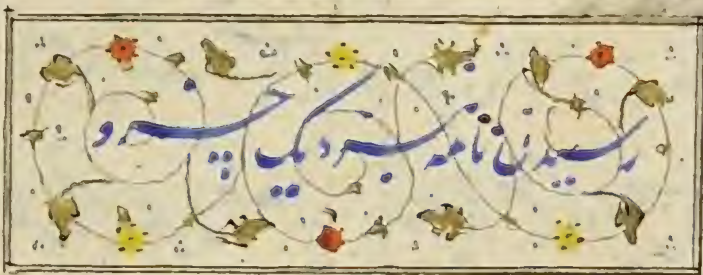 رسیدن نامه بنزدیک خسرو